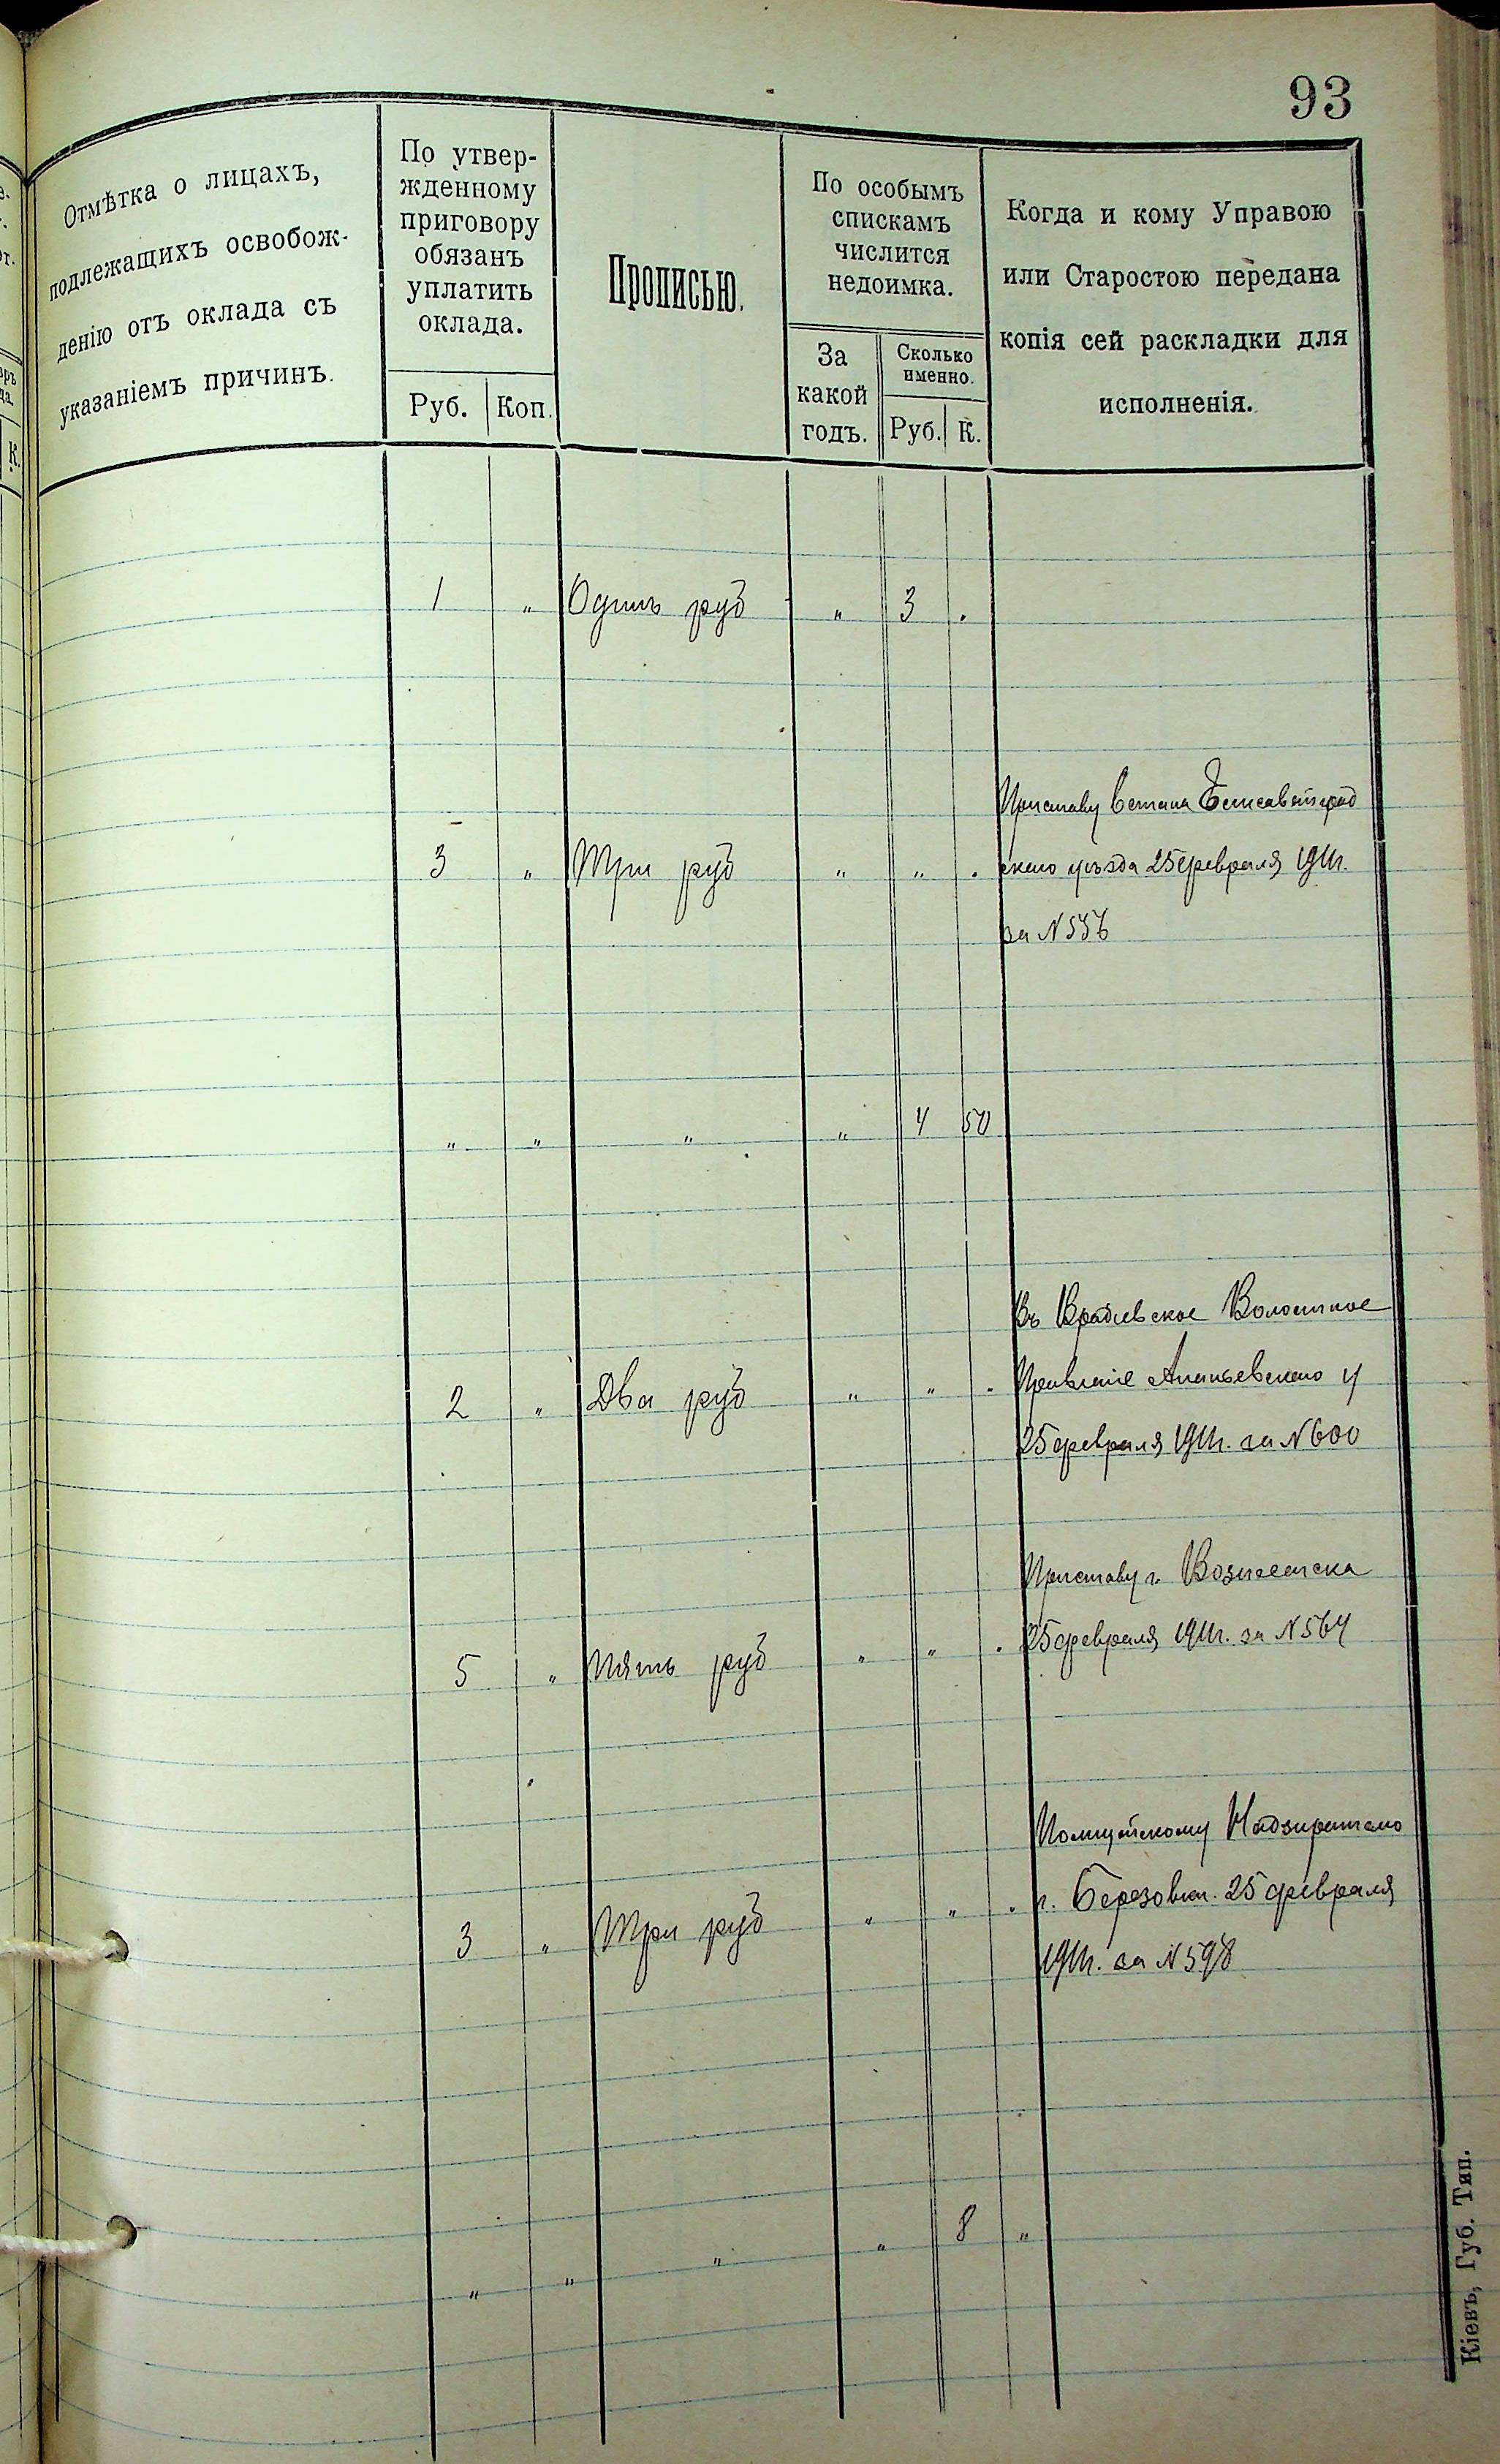 93
Отмѣтка о лицахъ,
подлежащихъ освобож-
денію отъ оклада съ
указаніемъ причинъ.
По утвер-
жденному
приговору
обязанъ
уплатить
оклада.
Руб. Коп.
Прописью.
По особымъ
спискамъ
числится
недоимка.
За
какой
годъ.
Сколько
именно.
Руб. К.
Когда и кому Управою
или Старостою передана
копія сей раскладки для
исполненія.
1 „ Одинъ руб „ 3 „
Приставу стана Елисаветград
3 „ Три руб „ „ „ скаго уѣзда 25 февраля 1911г.
за N 556
„ „ „ „ 4 50
Въ Врадіевское Волостное
2 „ Два руб „ „ „ Правленіе Ананьевскаго у
25 февраля 1911г. за N 600
Приставу г. Вознесенска
5 „ Пять руб „ „ „ 25 февраля 1911г. за N 564
Полицейскому Надзирателю
3 „ Три руб „ „ „ г. Березовки. 25 февраля
1911г. за N 598
„ „ „ „ 8 „
Кіевъ, Губ. Тип.